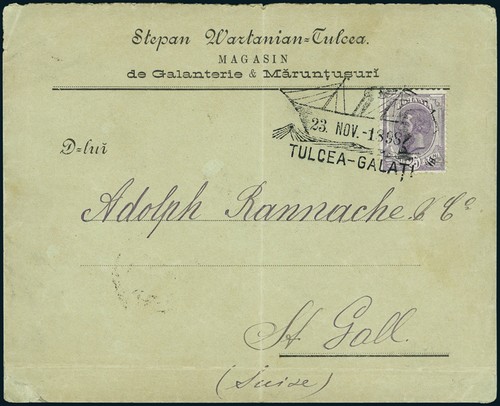 Stepan Wartanian=Tulcea.
MAGASIN
de Galanterie & Măruntușuri
23. NOV.-1898
TULCEA-GALAȚI
D=lui
Adolph Rannache & Co
St Gall.
(Suise)